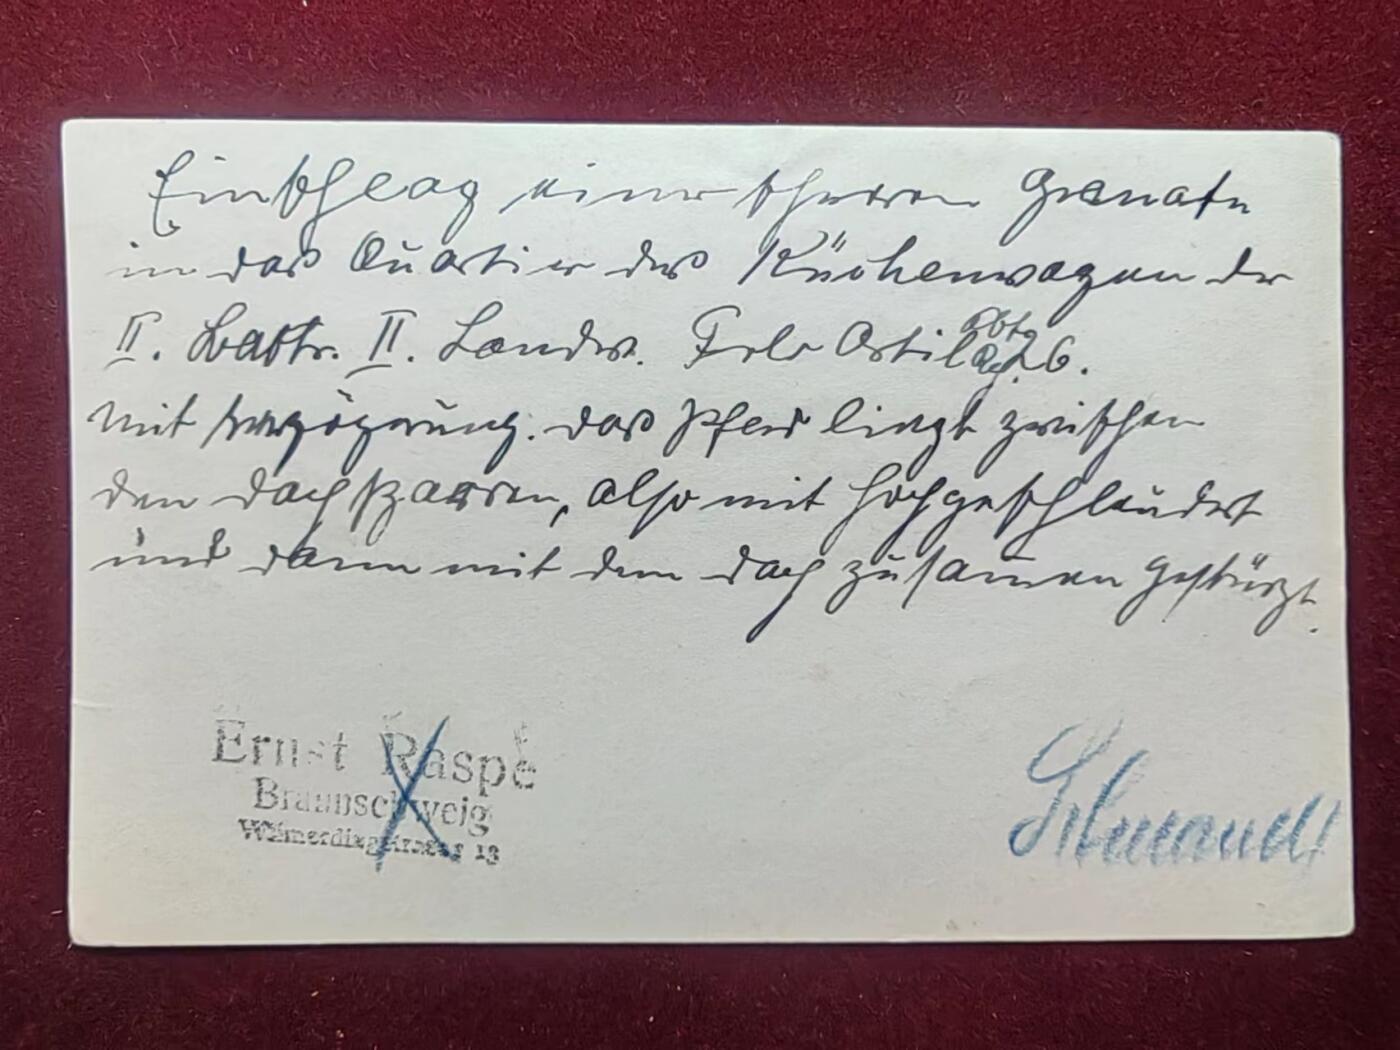 Einschlag einer schweren Granate
in das Quartier des Küchenwagen der
II. Battr. II. Landw. Feld Artil Abtg. 26.
mit Verzögerung. das Pferd liegt zwischen
den Dachsparren, also mit hochgeschleudert
und dann mit dem Dach zusammen gestürzt.
Ernst Raspe
Braunschweig
Wilmerdingstrasse 13